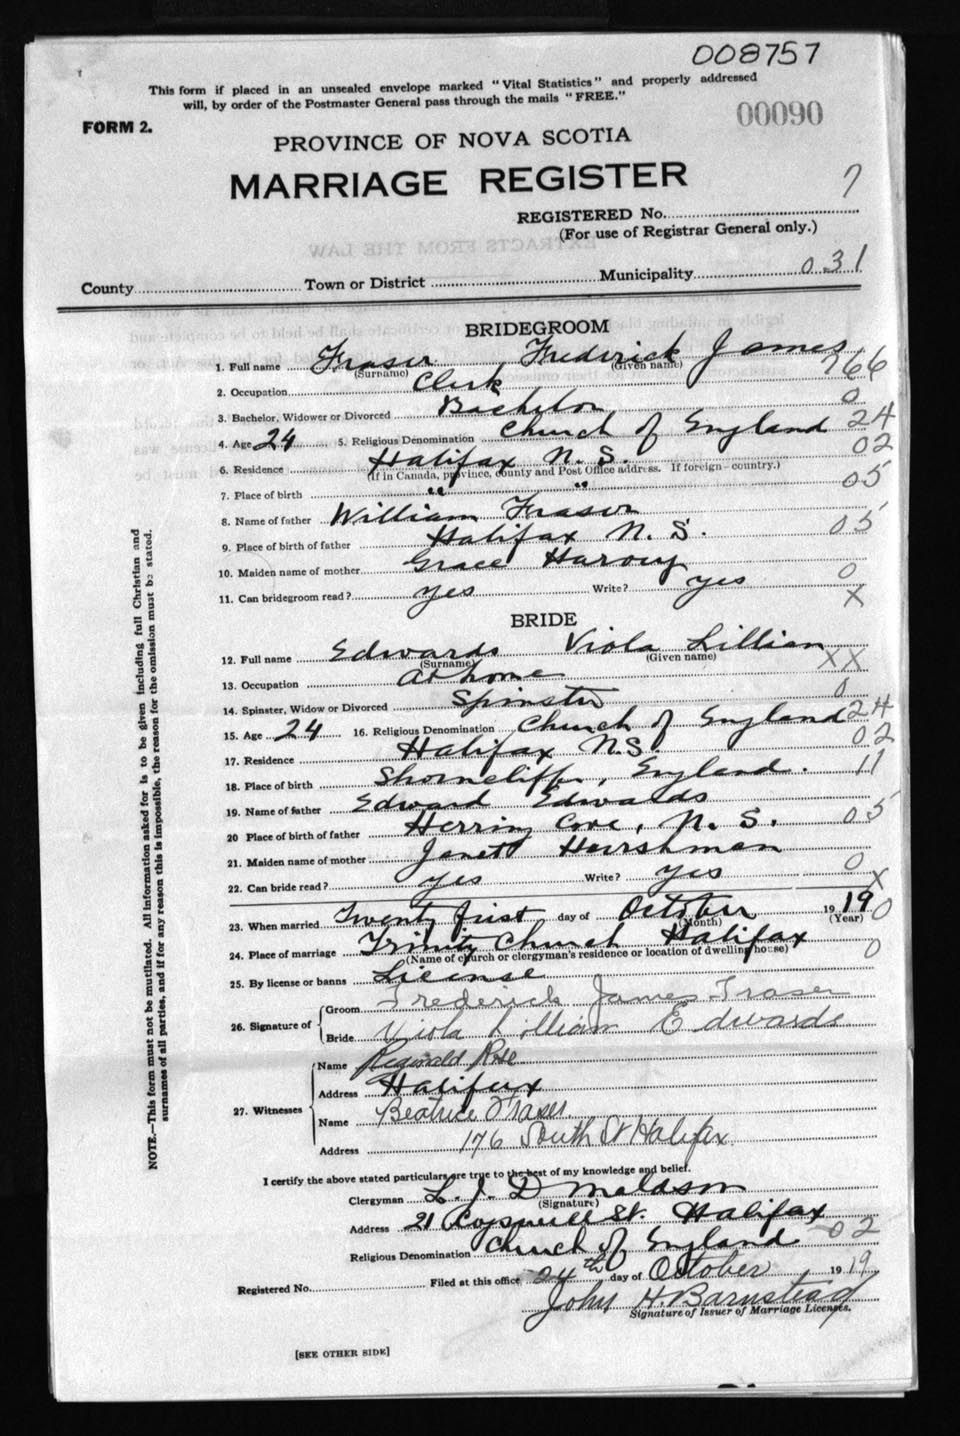 008757
This form if placed in an unsealed envelope marked "Vital Statistics" and properly addressed
will, by order of the Postmaster General pass through the mails "FREE."
00090
FORM 2.
PROVINCE OF NOVA SCOTIA
MARRIAGE REGISTER
7
REGISTERED No.
(For use of Registrar General only.)
County Town or District Municipality 031
BRIDEGROOM
1. Full name Fraser Frederick James
(Surname) (Given name)
766
2. Occupation Clerk
3. Bachelor, Widower or Divorced Bachelor 0
4. Age 24 5. Religious Denomination Church of England 24
6. Residence Halifax N. S. 02
(If in Canada, province, county and Post Office address. If foreign—country.)
7. Place of birth " " 05
8. Name of father William Fraser
9. Place of birth of father Halifax N. S. 05
10. Maiden name of mother Grace Harvey
11. Can bridegroom read? yes Write? yes 0
X
BRIDE
12. Full name Edwards Viola Lillian
(Surname) (Given name) XX
13. Occupation At home
14. Spinster, Widow or Divorced Spinster 0
15. Age 24 16. Religious Denomination Church of England 24
17. Residence Halifax N.S. 02
18. Place of birth Shorncliffe, England. 11
19. Name of father Edward Edwards
20 Place of birth of father Herring Cove, N. S. 05
21. Maiden name of mother Janet Harshman
22. Can bride read? yes Write? yes 0
X
23. When married Twenty first day of October 1919 0
(Month) (Year)
24. Place of marriage Trinity Church Halifax 0
(Name of church or clergyman's residence or location of dwelling house)
25. By license or banns License
26. Signature of Groom Frederick James Fraser
Bride Viola Lilliam Edwards
27. Witnesses Name Reginald Rose
Address Halifax
Name Beatrice Fraser
Address 176 South St Halifax
I certify the above stated particulars are true to the best of my knowledge and belief.
Clergyman L. J. Donaldson
(Signature)
Address 21 Cogswell St. Halifax
Religious Denomination Church of England 02
Registered No. Filed at this office 24th day of October 1919
John H. Barnstead
Signature of Issuer of Marriage Licenses.
[SEE OTHER SIDE]
NOTE.—This form must not be mutilated. All information asked for is to be given including full Christian and
surnames of all parties, and if for any reason this is impossible, the reason for the omission must be stated.